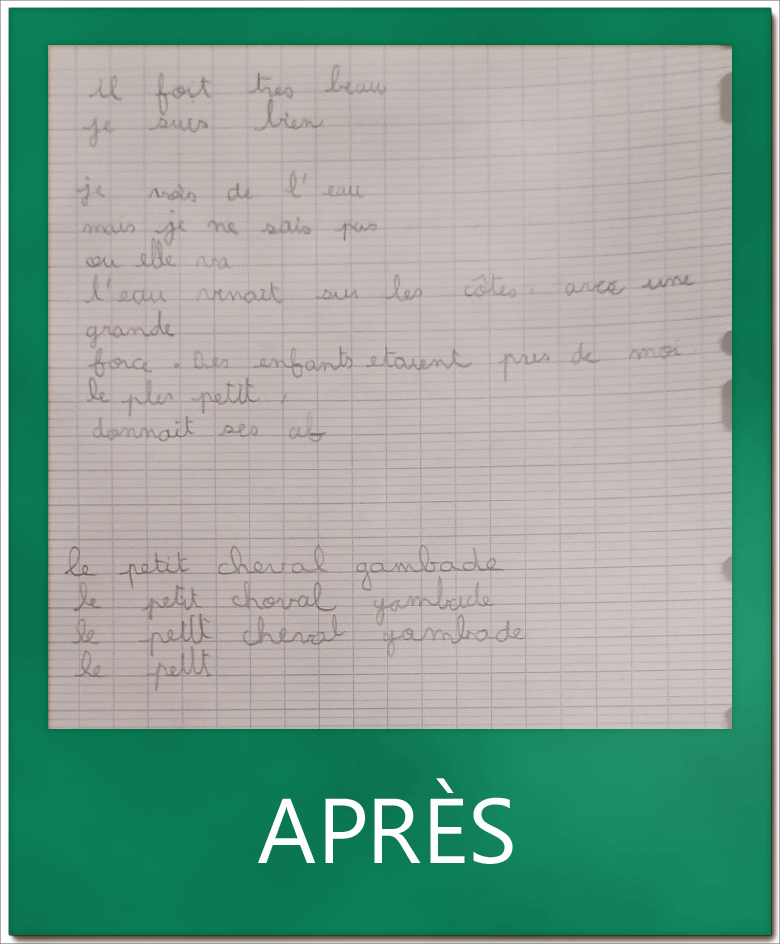 il fait tres beau
je suis bien
je vois de l'eau
mais je ne sais pas
ou elle va
l'eau venait sur les côtes. avec une
grande
force. Des enfants etaient pres de moi
le plus petit,
donnait ses
le petit cheval gambade
le petit choval gambade
le petit cheval gambade
le petit
APRÈS